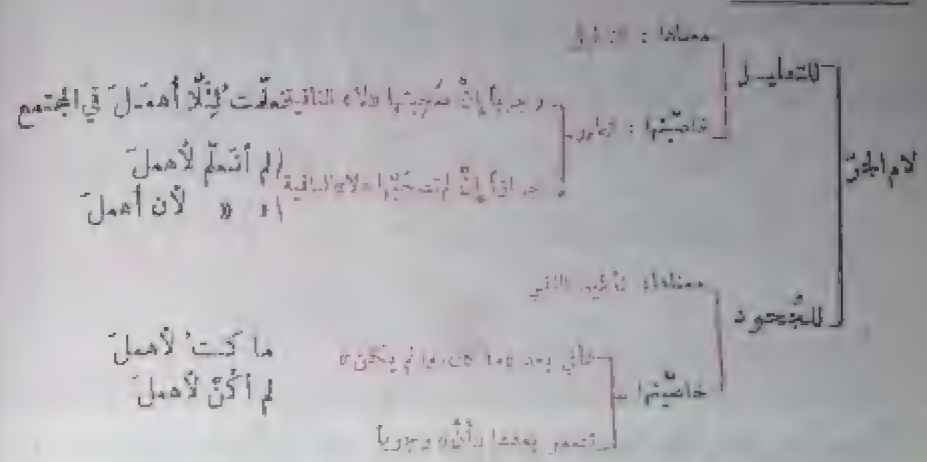 لام الجرّ
للتعليل
معناها :
خاصّيتها : تظهر
وجوباً إنْ صحبتها «لا» النافية
تعلّمت لِئَلّا أُهمَلَ في المجتمع
جوازاً إنْ لم تصحبها «لا» النافية
لم أتعلّم لأُهملَ
« « لأن أُهملَ
للجُحود
معناها: توكيد النفي
خاصّيتها
تأتي بعد «ما كان» و«لم يكن»
تضمر بعدها «أنْ» وجوباً
ما كنتُ لأُهملَ
لم أكُنْ لأُهملَ